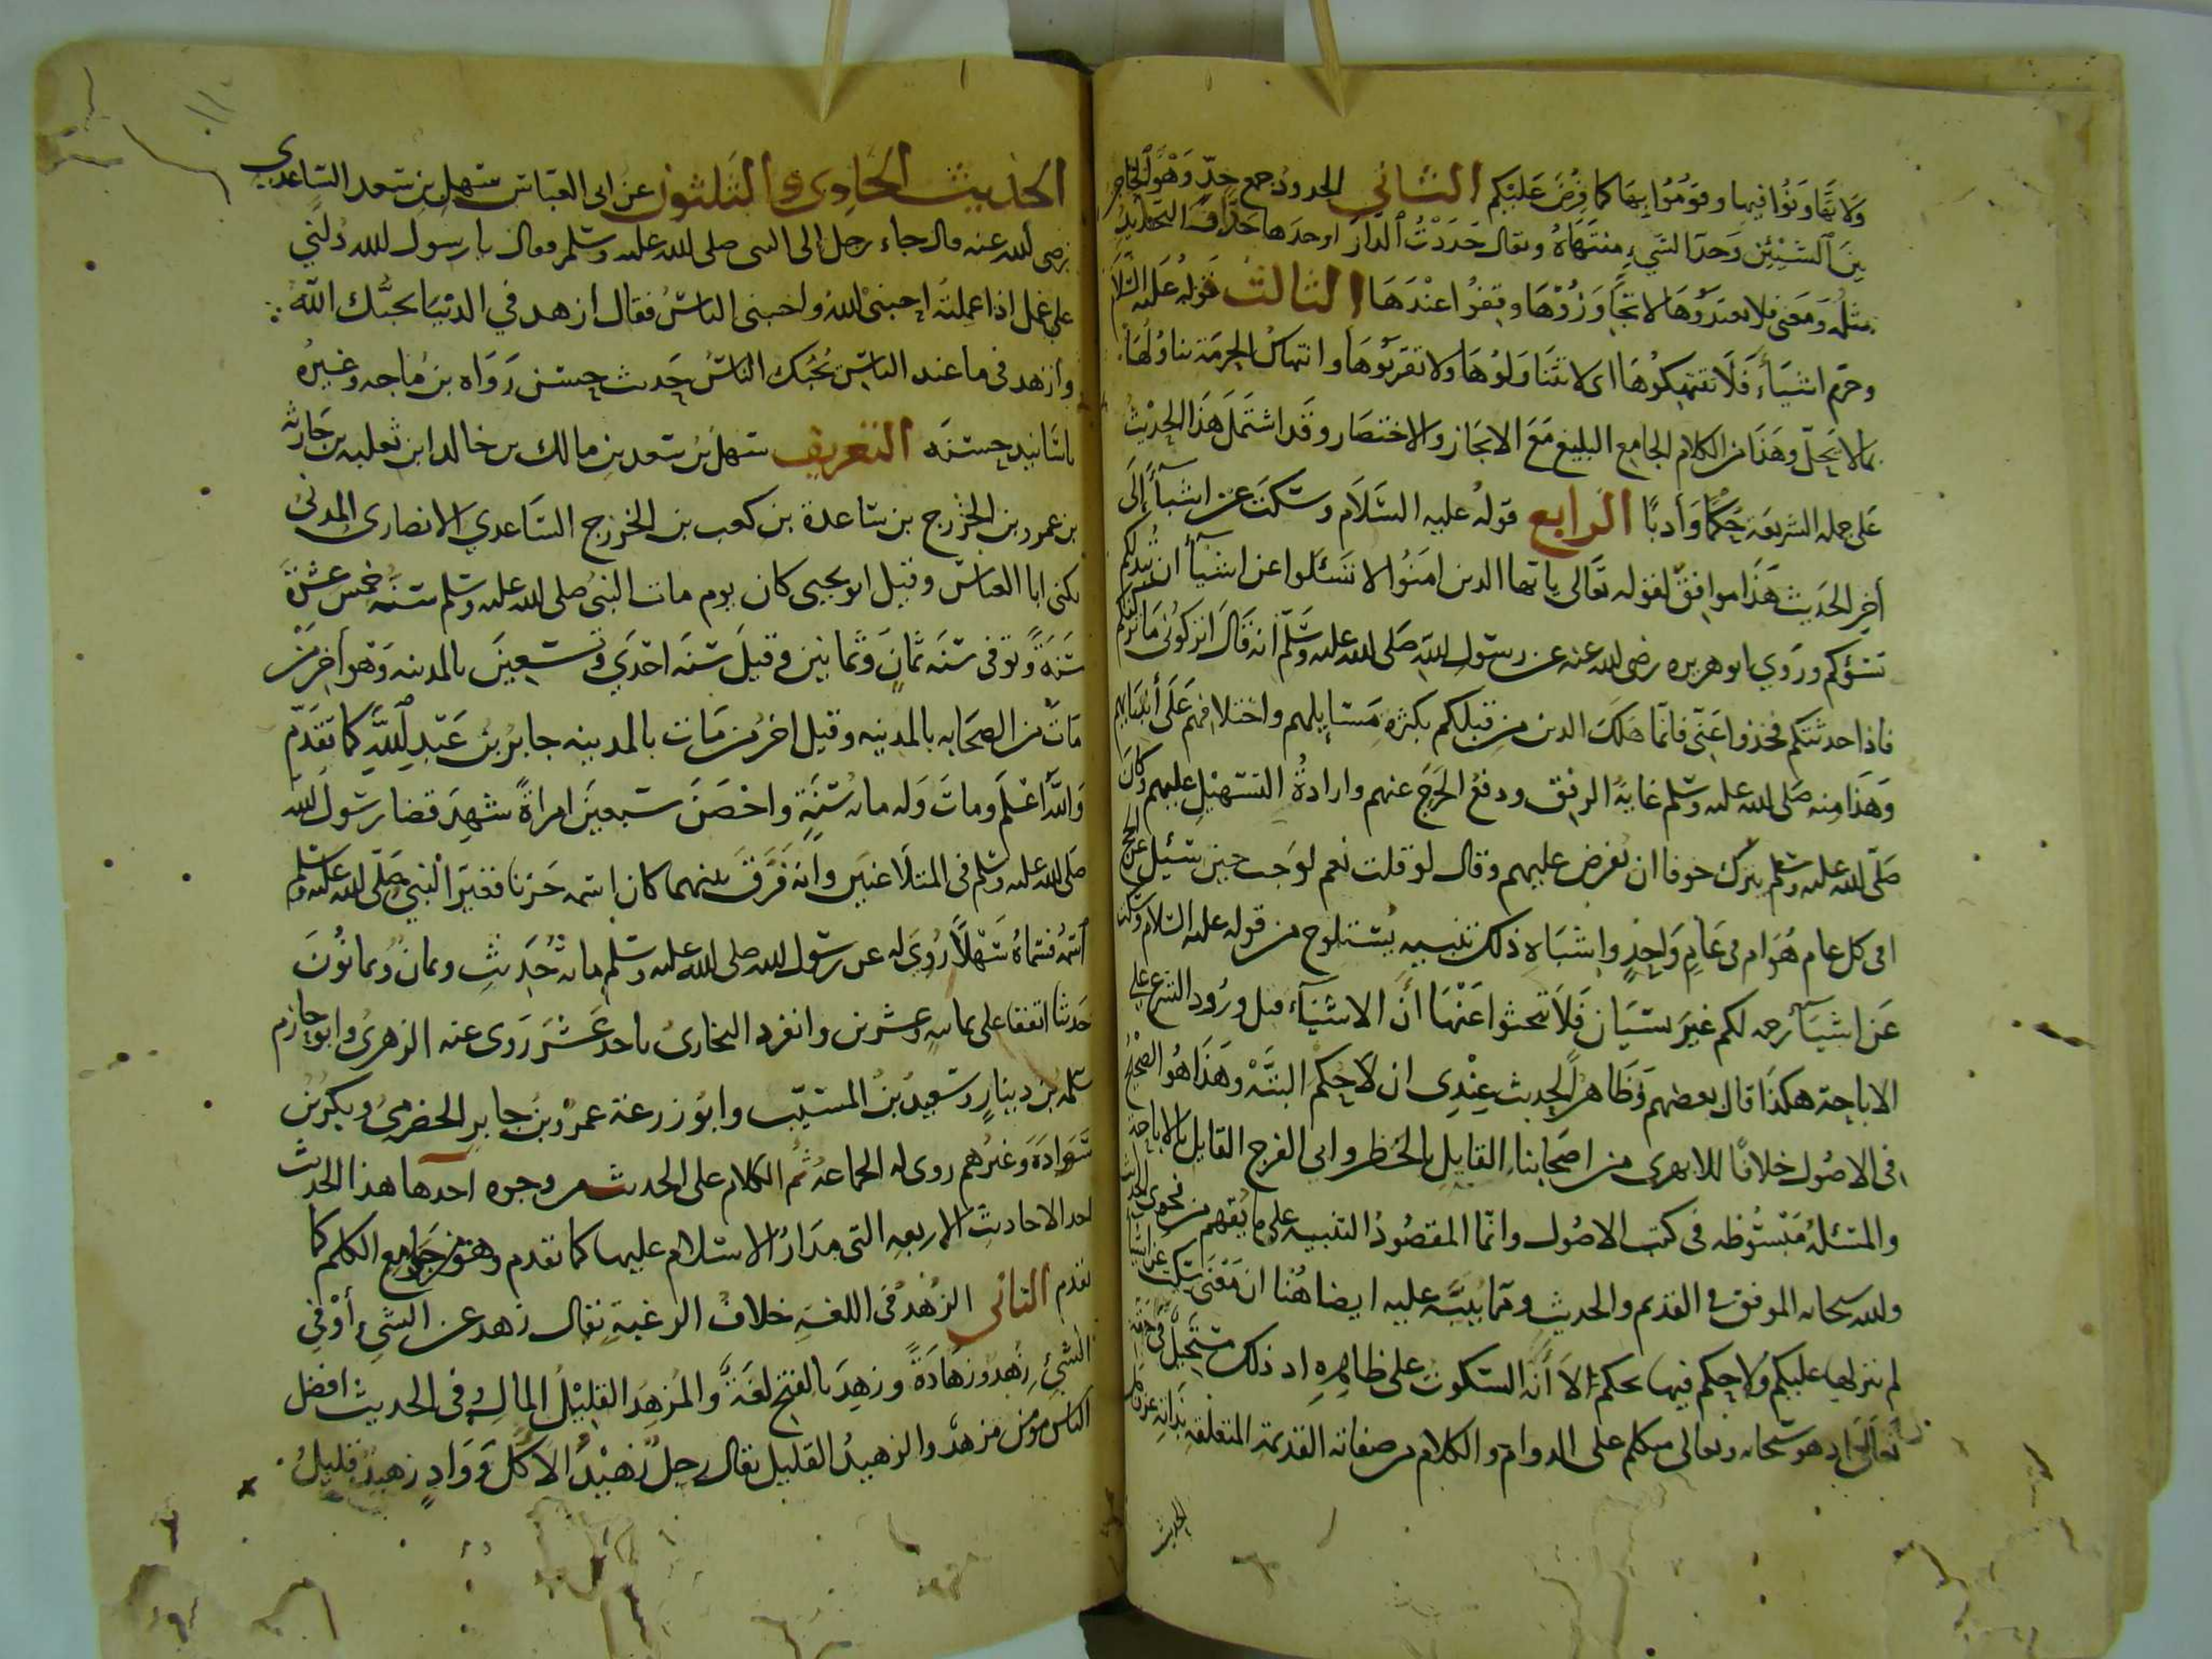 ولا تهاونوا فيها وقوموا بها كما فرض عليكم الثاني الحدود جمع حد وهو الحاجز
بين الشيئين وحد الشيء منتهاه ويقال حددت الدار احدها حدا والتحديد
مثله ومعنى فلا تعتدوها لا تجاوزوها وقفوا عندها الثالث قوله عليه السلام
وحرم اشياء فلا تنتهكوها اى لا تتناولوها ولا تقربوها وانتهاك الحرمة تناولها
بما لا يحل وهذا من الكلام الجامع البليغ مع الايجاز والاختصار وقد اشتمل هذا الحديث
على جمله الشريعه حكما وأدبا الرابع قوله عليه السلام وسكت عن اشياء إلى
أخر الحديث هذا موافق لقوله تعالى يا يها الدين امنوا لا تسئلوا عن اشياء ان تبد لكم
تسؤكم وروي ابو هريره رضى الله عنه عن رسول الله صلى الله عليه وسلم أنه قال اتركونى ما تركتكم
فاذا حدثتكم فخذوا عنى فانما هلك الدين من قبلكم بكثرة مسايلهم واختلافهم على أنبيايهم
وهذا منه صلى الله عليه وسلم غاية الرفق ودفع الحرج عنهم وارادة التسهيل عليهم وكان
صلى الله عليه وسلم يترك خوفا ان يفرض عليهم وقال لو قلت نعم لوجبت حين سئيل عن الحج
افى كل عام هو ام فى عام واحد واشباه ذلك تنبيه يستلوح من قوله عليه السلام وسكت
عن اشياء رحمه لكم غير نسيان فلا تبحثوا عنها أن الاشياء قبل ورود الشرع على
الاباحة هكذا قال بعضهم وظاهر الحديث عندى ان لا حكم البته وهذا هو الصحيح
فى الاصول خلافا للابهرى من اصحابنا القايل بالحظر وابى الفرج القايل بالاباحة
والمسئله مبسوطه فى كتب الاصول وانما المقصود التنبيه على ما يفهم من فحوى الحديث
والله سبحانه الموفق فى القديم والحديث ومما ينبه عليه ايضا هنا ان معنى سكت عن اشيا
لم ينزلها عليكم ولا حكم فيها بحكم الا أنه السكوت على ظاهره اد ذلك مستحيل فى حقه
تعالى اد هو سبحانه وتعالى متكلم على الدوام والكلام من صفاته القديمة المتعلقة بذاته
الحديث
الحديث الحادى والثلثون عن ابى العباس سهل بن سعد الساعدى
رضى الله عنه قال جاء رجل الى النبى صلى الله عليه وسلم فقال يا رسول الله دلنى
على عمل اذا عملته احبنى الله واحبنى الناس فقال ازهد في الدنيا يحبك الله
وازهد فى ما عند الناس يحبك الناس حديث حسن رواه بن ماجه وغيره
باسانيد حسنه التعريف سهل بن سعد بن مالك بن خالد ابن ثعلبه بن حارثه
بن عمرو بن الخزرج بن ساعدة بن كعب بن الخزرج الساعدي الانصارى المدنى
يكنى ابا العباس وقيل ابو يحيى كان يوم مات النبي صلى الله عليه وسلم سنه خمس عشرة
سنة وتوفى سنه ثمان وثمانين وقيل سنه احدي وتسعين بالمدينه وهو أخر من
مات من الصحابه بالمدينه وقيل اخر من مات بالمدينه جابر بن عبد الله كما تقدم
والله أعلم ومات وله مائه سنة واحصن سبعين امراة شهد قضا رسول الله
صلى الله عليه وسلم فى المتلاعنين وأنه فرق بينهما كان اسمه حزنا فغير النبي صلى الله عليه وسلم
اسمه فسماه سهلا رُوي له عن رسول الله صلى الله عليه وسلم مائة حديث وثمان وثمانون
حديثا اتفقا على ثمانيه وعشرين وانفرد البخارى باحد عشر روى عنه الزهرى وابو حازم
سلمه بن دينار وسعيد بن المسيب وابو زرعة عمرو بن جابر الحضرمى وبكر بن
سوادة وغيرهم روى له الجماعه ثم الكلام على الحديث من وجوه احدها هذا الحديث
احد الاحاديث الاربعه التى مدار الاسلام عليها كما تقدم وهو من جوامع الكلم كما
تقدم الثانى الزهد فى اللغة خلاف الرغبة يقال زهد عن الشي أو في
الشي زهد وزهادة وزهد بالفتح لغة والمزهد القليل المال وفى الحديث افضل
الناس مومن مزهد والزهيد القليل يقال رجل زهيد الاكل وواد زهيد قليل